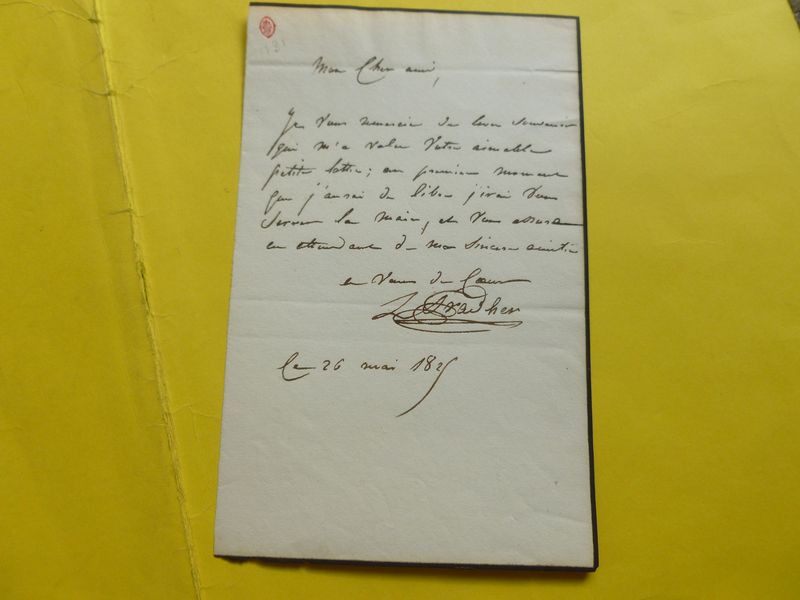 181
Mon Cher ami,
Je vous remercie de bon souvenir
qui m'a valu votre aimable
petite lettre; au premier moment
que j'aurai de libre j'irai vous
serrer la main, et vous assure
en attendant de mon sincère amitié
à vous de Coeur
Pradher
le 26 mai 1825